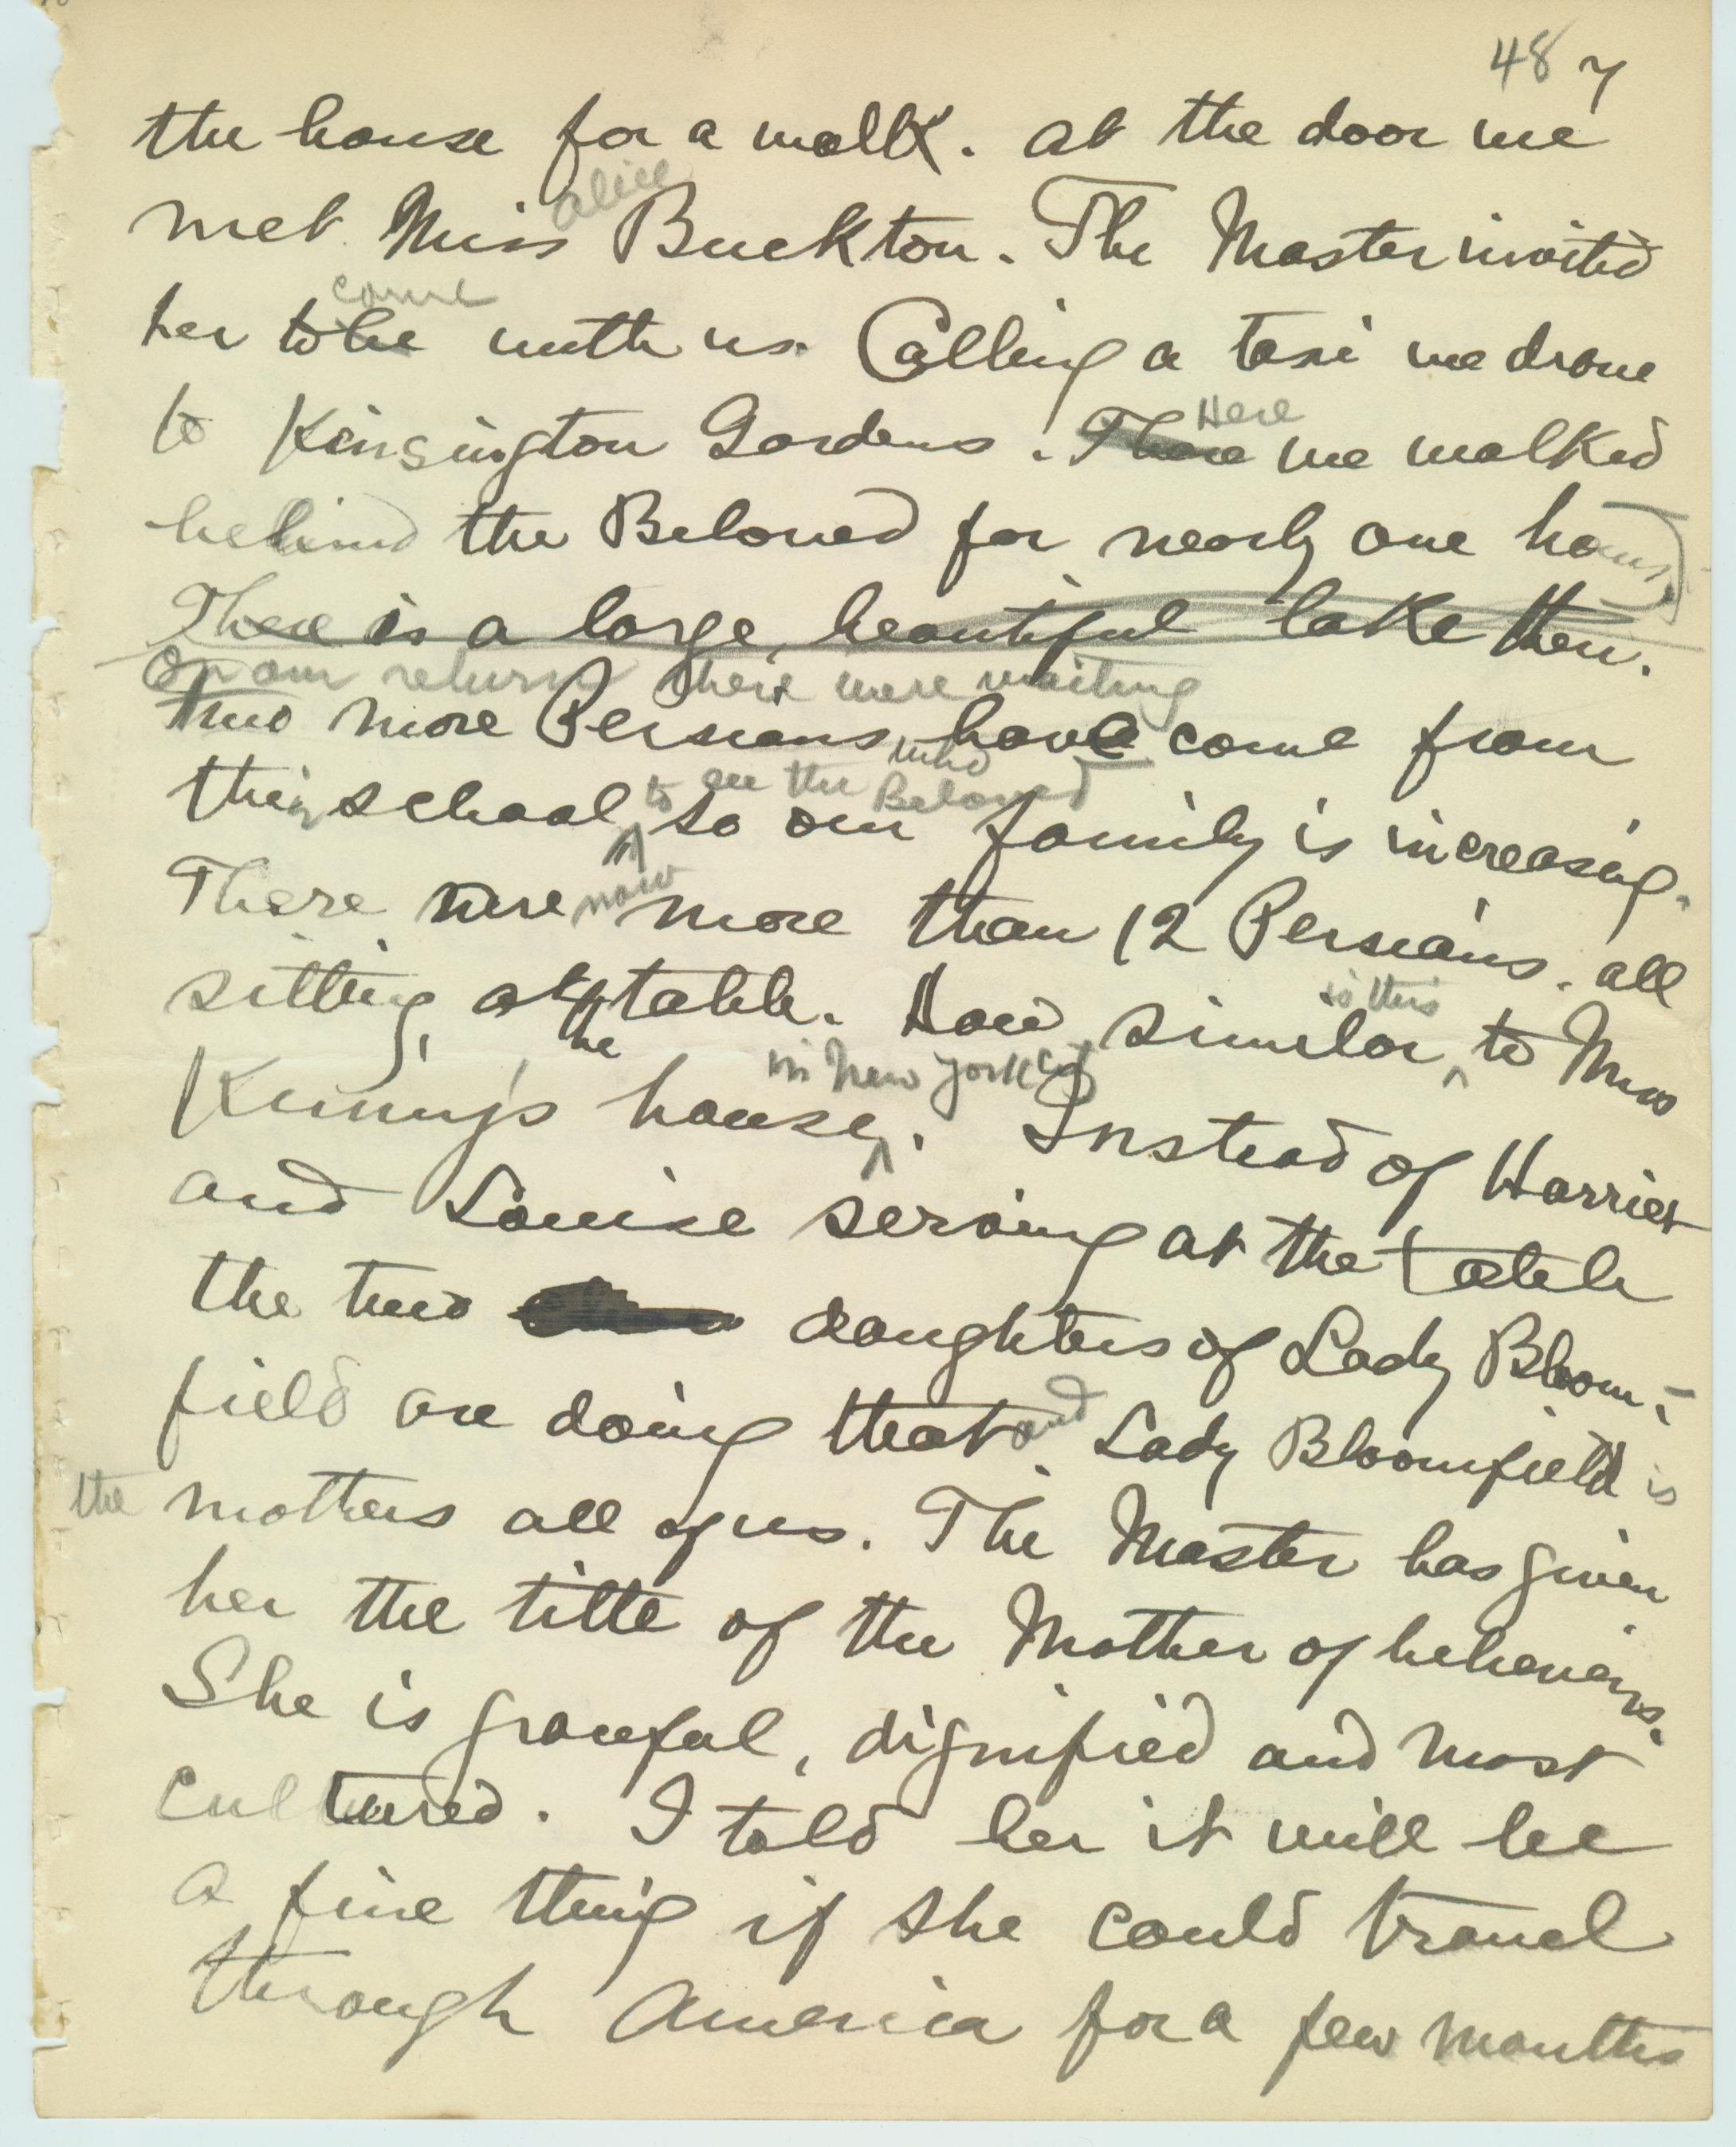 48 7
the house for a walk. At the door we
alice
met Miss Buckton. The Master invited
come
her to be with us. Calling a taxi we drove
Here
to Kensington Gardens. There we walked
behind the Beloved for nearly one hour.
There is a large, beautiful lake there.
On our return there were waiting
two more Persians have come from
who
to see the Beloved
their school, so our family is increasing.
now
There were more than 12 Persians. all
is this
sitting at table. How similar to Miss
the
in New York City
Kinny's house. Instead of Harriet
and Louise serving at the table
the two daughters of Lady Bloom-
and
field are doing that. Lady Bloomfield is
the mothers all of us. The Master has given
her the title of the Mother of believers.
She is graceful, dignified and most
cultured. I told her it will be
a fine thing if she could travel
through America for a few months